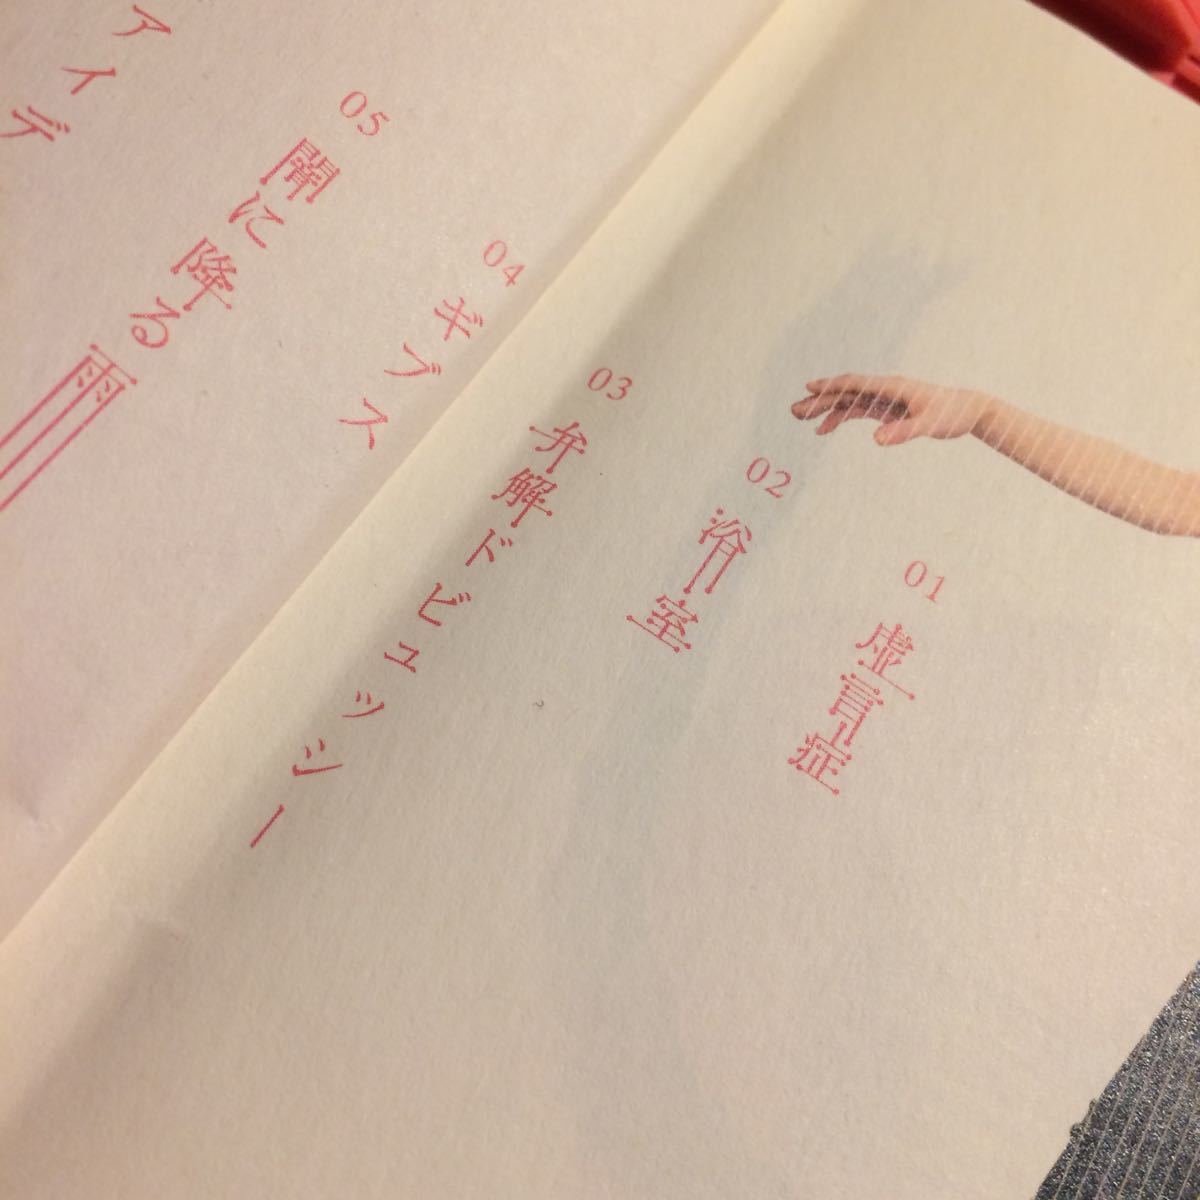 01
虚言症
02
浴室
03
弁解ドビュッシー
04
ギブス
05
闇に降る雨
アイデ